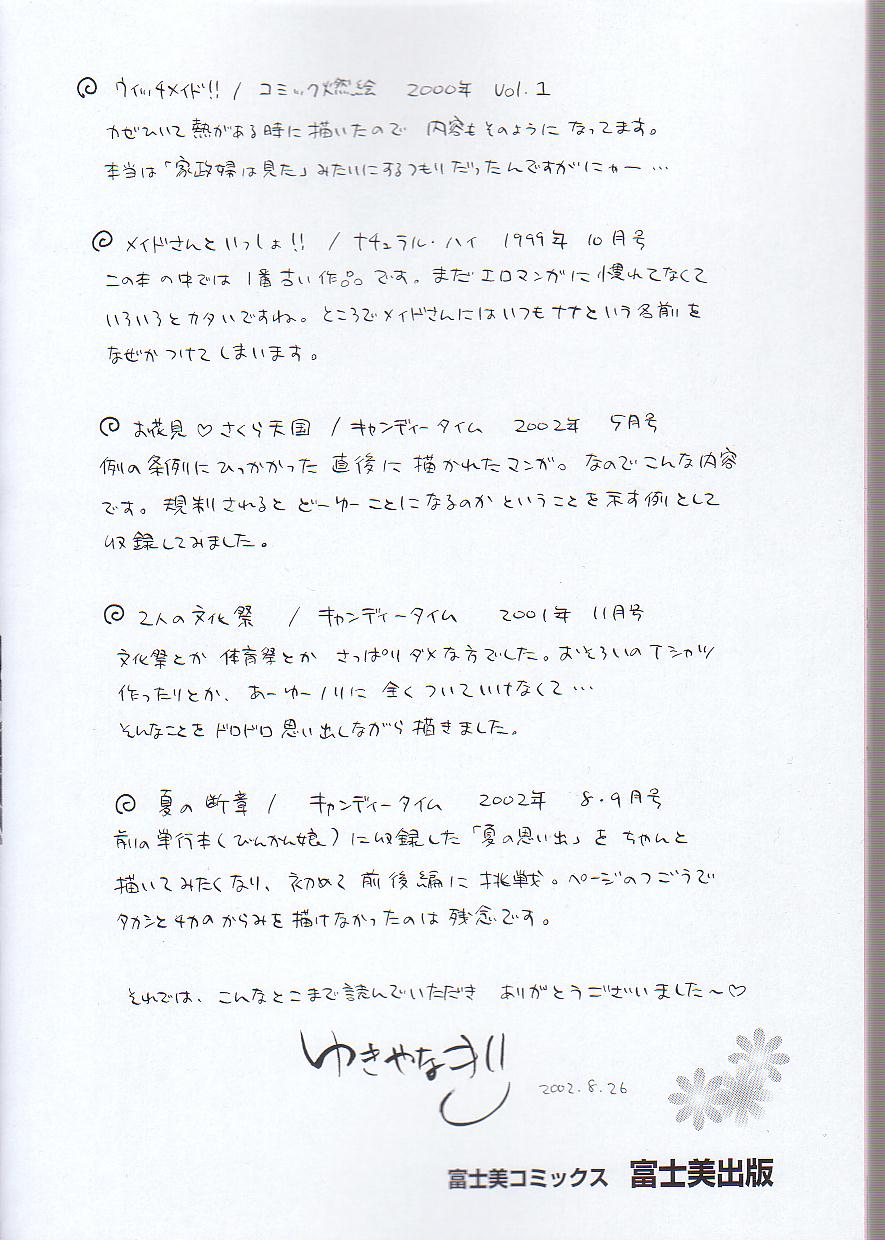 ウィッチメイド!! / コミック燃絵 2000年 Vol.1
かぜひいて熱がある時に描いたので 内容もそのようになってます。
本当は「家政婦は見た」みたいにするつもりだったんですがにゃー…
メイドさんといっしょ!! / ナチュラル・ハイ 1999年 10月号
この本の中では 1番古い作品です。まだエロマンガに慣れてなくて
いろいろとカタいですね。ところでメイドさんにはいつもナナという名前を
なぜかつけてしまいます。
お花見♡さくら天国 / キャンディータイム 2002年 5月号
例の条例にひっかかった直後に描かれたマンガ。なのでこんな内容
です。規制されると どーゆーことになるのか ということを示す例として
収録してみました。
2人の文化祭 / キャンディータイム 2001年 11月号
文化祭とか 体育祭とか さっぱりダメな方でした。おそろいのTシャツ
作ったりとか、あーゆーノリに 全くついていけなくて…
そんなことをドロドロ思い出しながら描きました。
夏の断章 / キャンディータイム 2002年 8・9月号
前の単行本(びんかん娘)に収録した「夏の思い出」をちゃんと
描いてみたくなり、初めて前後編に挑戦。ページのつごうで
タカシとチカのからみを描けなかったのは残念です。
それでは、こんなとこまで読んでいただき ありがとうございました〜♡
ゆきやなぎ
2002.8.26
富士美コミックス 富士美出版